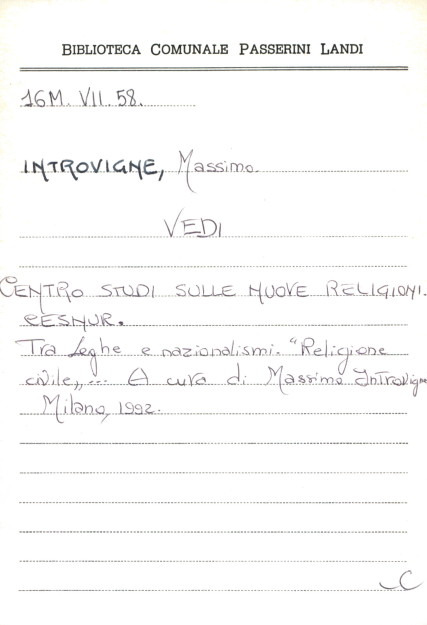 BIBLIOTECA COMUNALE PASSERINI LANDI
16M. VII. 58.
INTROVIGNE, Massimo.
VEDI
CENTRO STUDI SULLE NUOVE RELIGIONI.
CESNUR.
Tra Leghe e nazionalismi. "Religione
civile„... A cura di Massimo Introvigne
Milano, 1992.
C